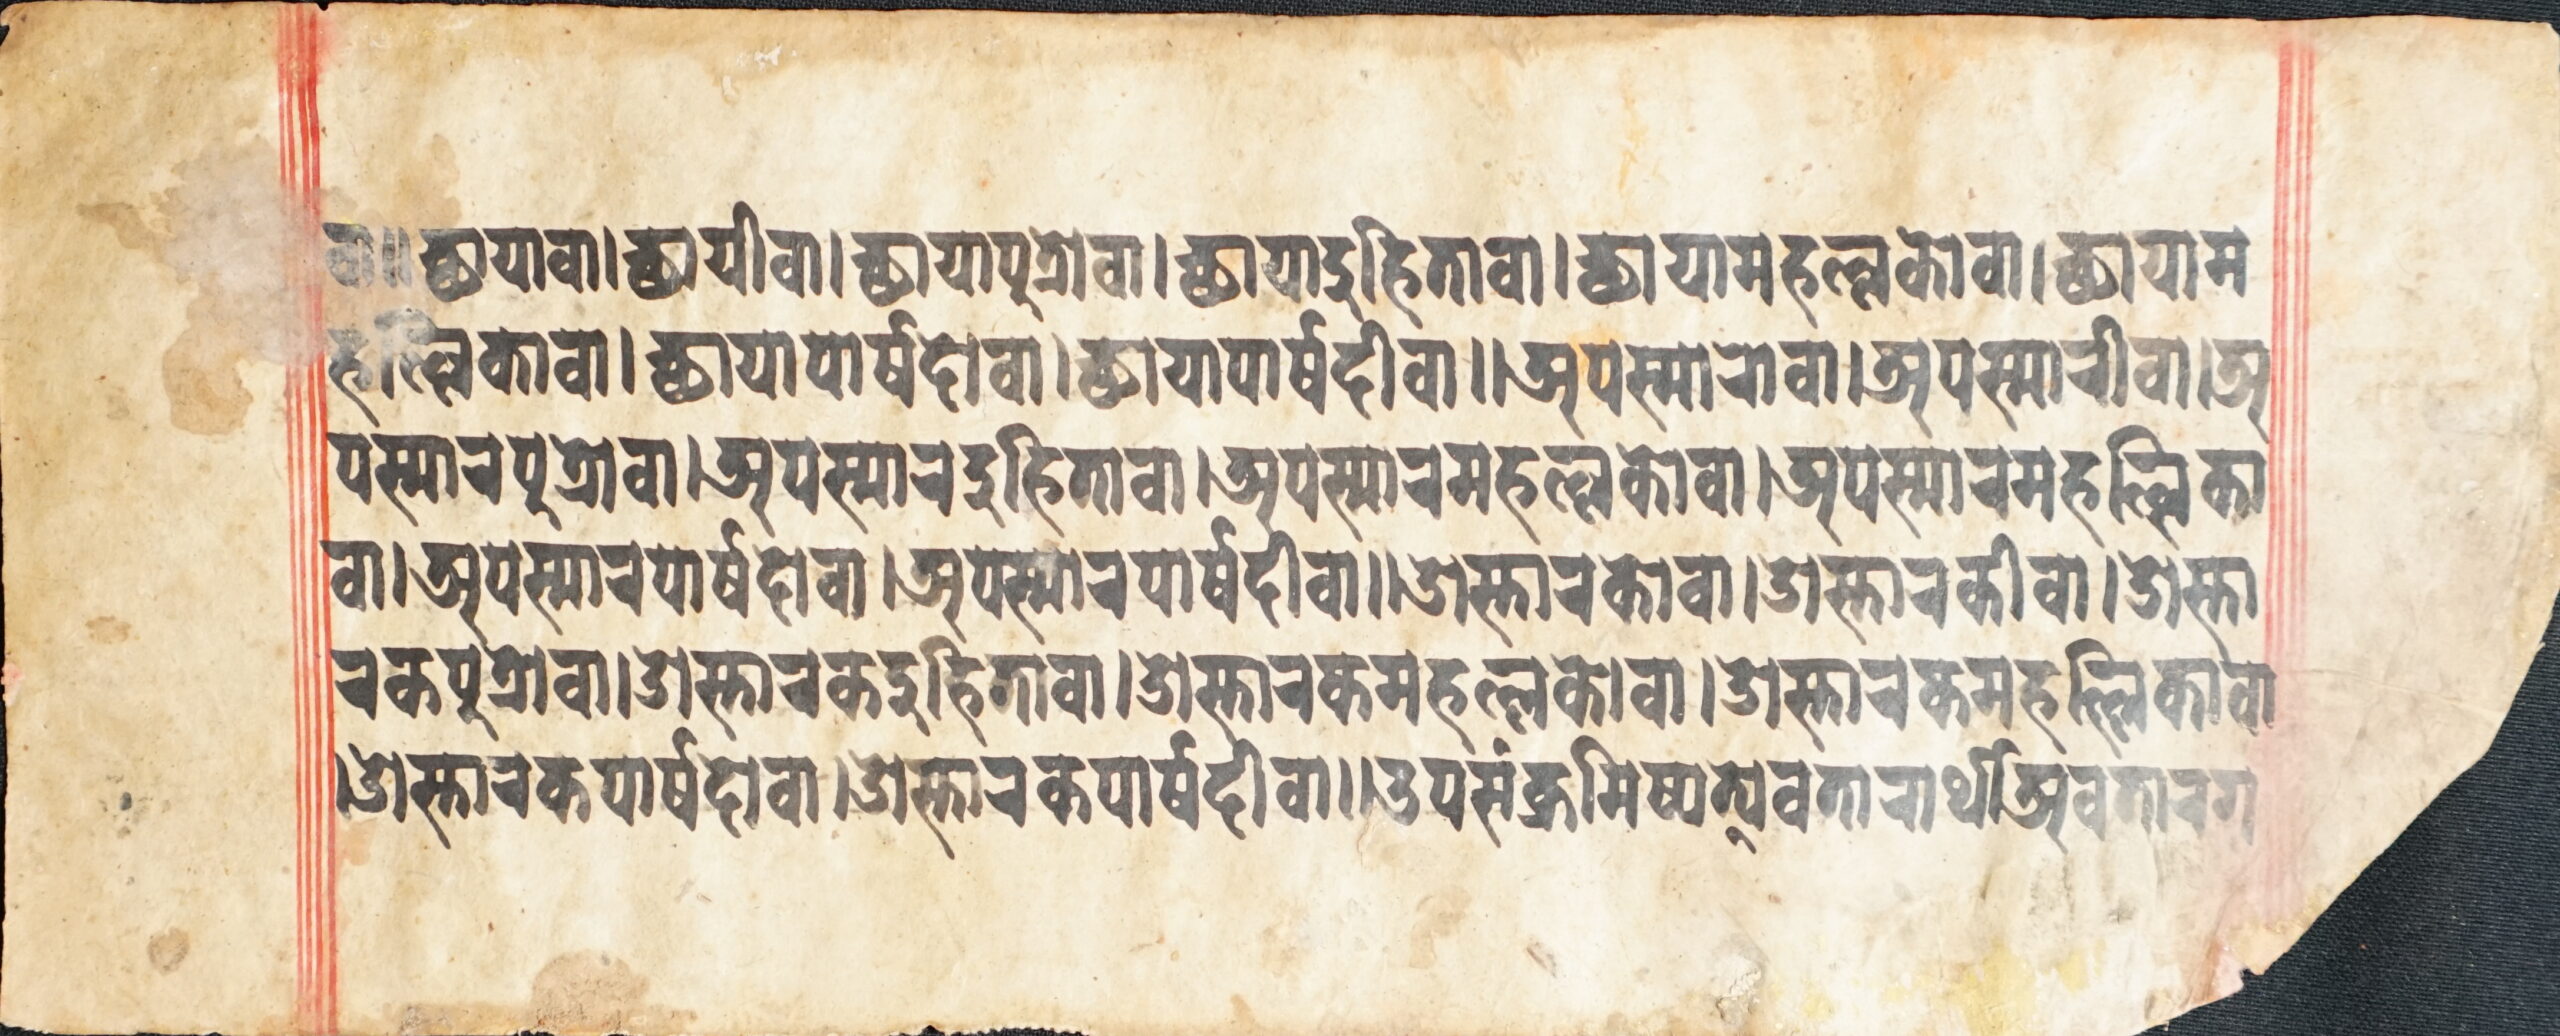 वा॥छायावा।छायीवा।छायापुत्रोवा।छायादुहितावा।छायामहल्लकोवा।छायाम
हल्लिकावा।छायापार्षदोवा।छायापार्षदीवा॥अपस्मारोवा।अपस्मारीवा।अ
पस्मारपुत्रोवा।अपस्मारदुहितावा।अपस्मारमहल्लकोवा।अपस्मारमहल्लिका
वा।अपस्मारपार्षदोवा।अपस्मारपार्षदीवा॥ओस्तारकोवा।ओस्तारकीवा।ओस्ता
रकपुत्रोवा।ओस्तारकदुहितावा।ओस्तारकमहल्लकोवा।ओस्तारकमहल्लिकावा
।ओस्तारकपार्षदोवा।ओस्तारकपार्षदीवा॥उपसंक्रमिष्यत्यवतारार्थी।अवतारग